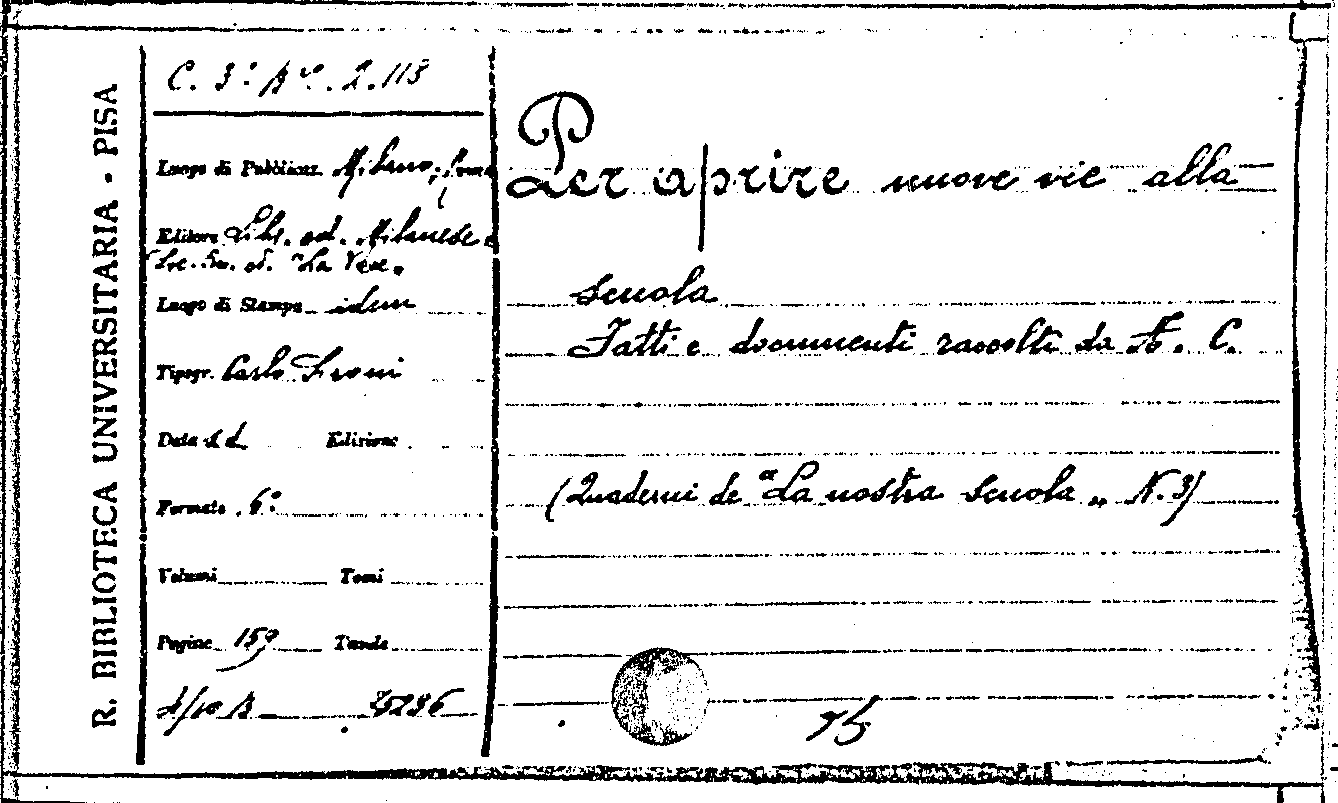 R. BIBLIOTECA UNIVERSITARIA - PISA
C. 3° 2.113
Luogo di Pubblicaz. Milano;
Editore Lib. ed. Milanese e
"La Voce.
Luogo di Stampa idem
Tipogr. Carlo
Data s d Edizione
Formato 6°
Volumi Tomi
Pagine 159 Tavole
Per aprire nuove vie alla
scuola
Fatti e documenti raccolti da F. C.
(Quaderni de "La nostra scuola „ N. 3)